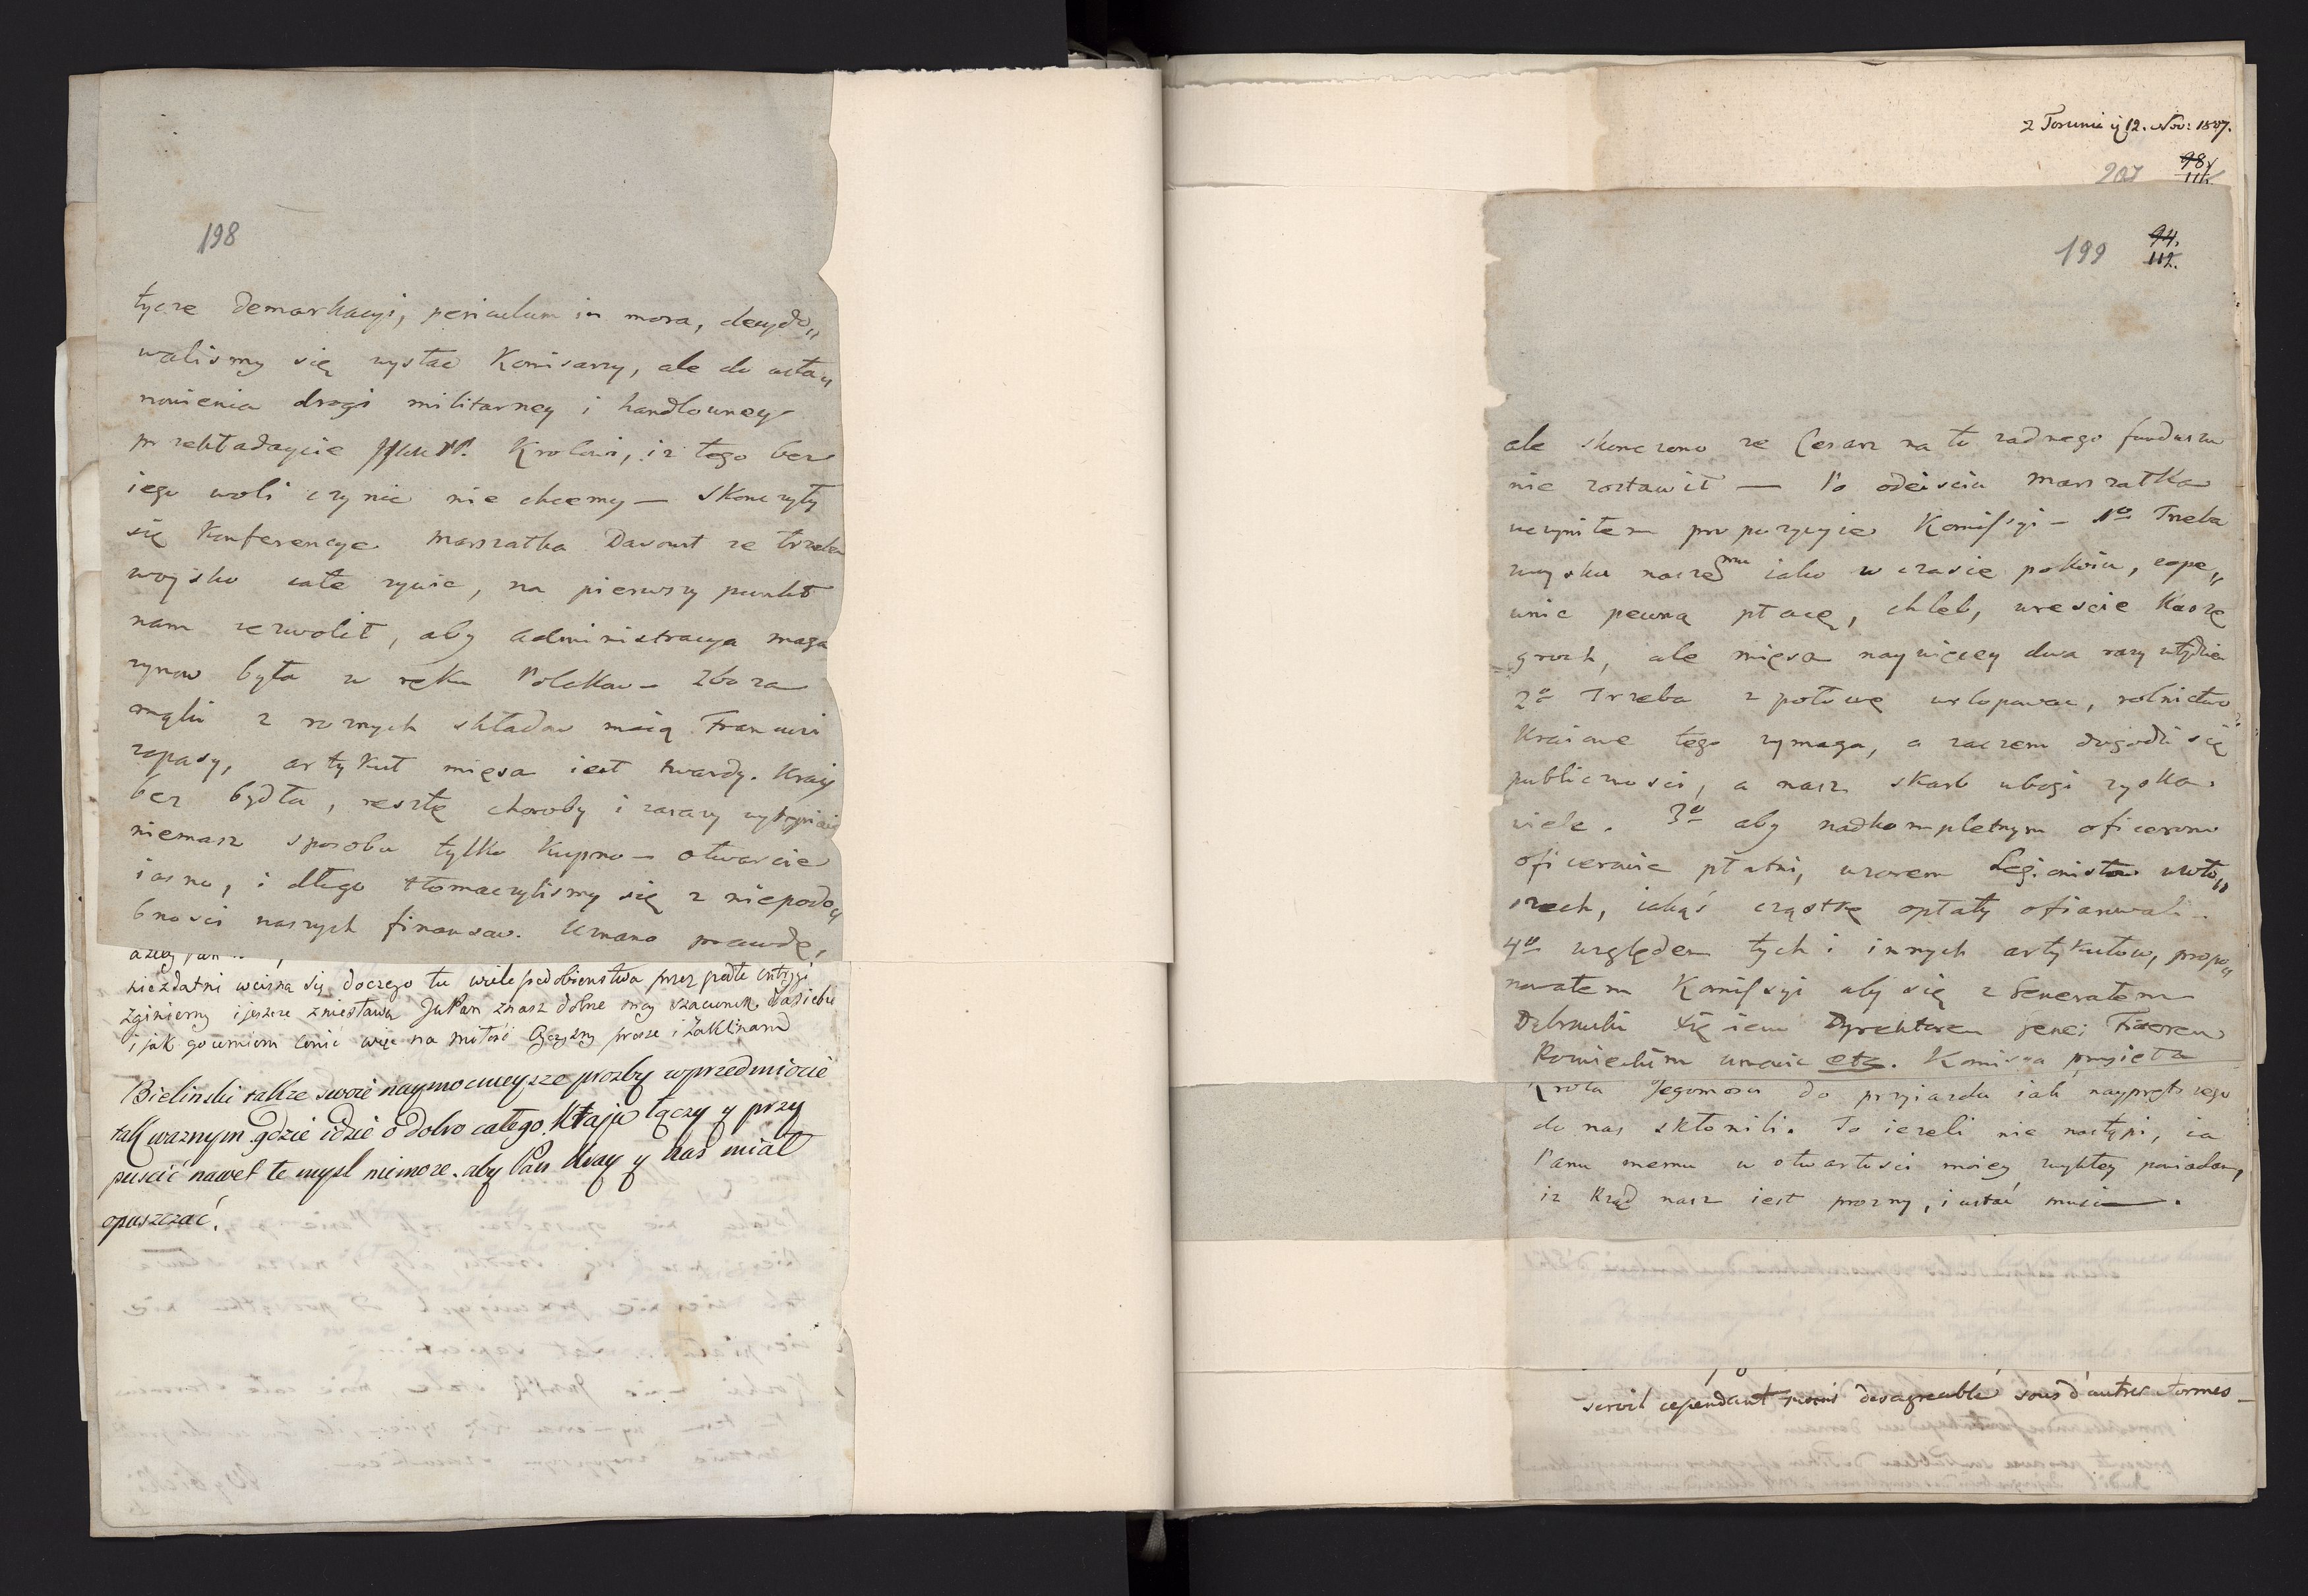 198
tycze demarkacyi, periculum in mora, decydo„
walismy się wysłac Komisarzy, ale do usta„
nowienia drogi militarney i handlowney
przekładaycie Królowi, iż tego bez
iego woli czynic nie chcemy — Skonczyły
się Konferencye marszałka Davout że trzeba
woysko całe zywic, na pierwszy punkt
nam zezwolił, aby administracya maga
zynow była w ręku Polakow — Zboza
mąki z roznych składow maią Francuzi
zapasy, artykuł mięsa iest twardy. Kray
bez bydła, resztę choroby i zarazy
niemasz sposobu tylko kupno — otwarcie
iasno, i długo tłomaczylismy się z niepodo„
bnosci naszych finansow. Uznano prawdę,
niezdatni wcisna się doczego tu wiele podobienstwa przez podłe intrygi
zginiemy i jeszcze zniesławą JuPan znasz dobre moy szacunek dasiebie
i jak go umiem cenić więc na miłość Oyczyzny prosze i zaklinam
Bielinski takze swoie naymocnieysze prozby w przedmiocie
tak waznym gdzie idzie o dobro całego Kraju łączy y przy
puscić nawet te mysl niemoze. aby Pan Kray y nas miał
opuszczać.
Wybicki
z Torunia d 12. Nov: 1807.
207 98
111.
199 94.
112.
ale skonczono ze Cesarz na to zadnego funduszu
nie zostawił — Po odeisciu marszałka
uczyniłem propozycyie Komissyi — 1o Trzeba
woysku naszemu iako w czasie pokoiu, zape„
wnic pewną płacę, chleb, wreście Kaszę
groch, ale mięsa naywięcey dwa razy wtydzien
2o Trzeba z połowę urlopowac, rolnictwo
Kraiowe tego wymaga, a zaczem dogodzi się
publicznosci, a nasz skarb ubogi zyska
wiele. 3o aby nadkompletnym oficerom
oficerowie płatni, wzorem Legionistow we Wło„
szech, iakąś cząstkę opłaty ofiarowali.
4o względem tych i innych artykułow, propo„
nowałem Komissyi aby się z Generałem
Dąbrowskim Dyrektorem
umowic etc. Komissya przyięła
Krola Jegomosci do przyiazdu iak nayprętszego
do nas skłonili. To iezeli nie nastąpi, ia
Panu memu w otwartosci moiey zwykłey powiadam,
iz Rząd nasz iest prozny, i ustać musi.
seroit cependant moins desagreable sous d'autres formes —